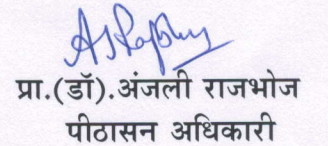 प्रा.(डॉ).अंजली राजभोज
पीठासन अधिकारी